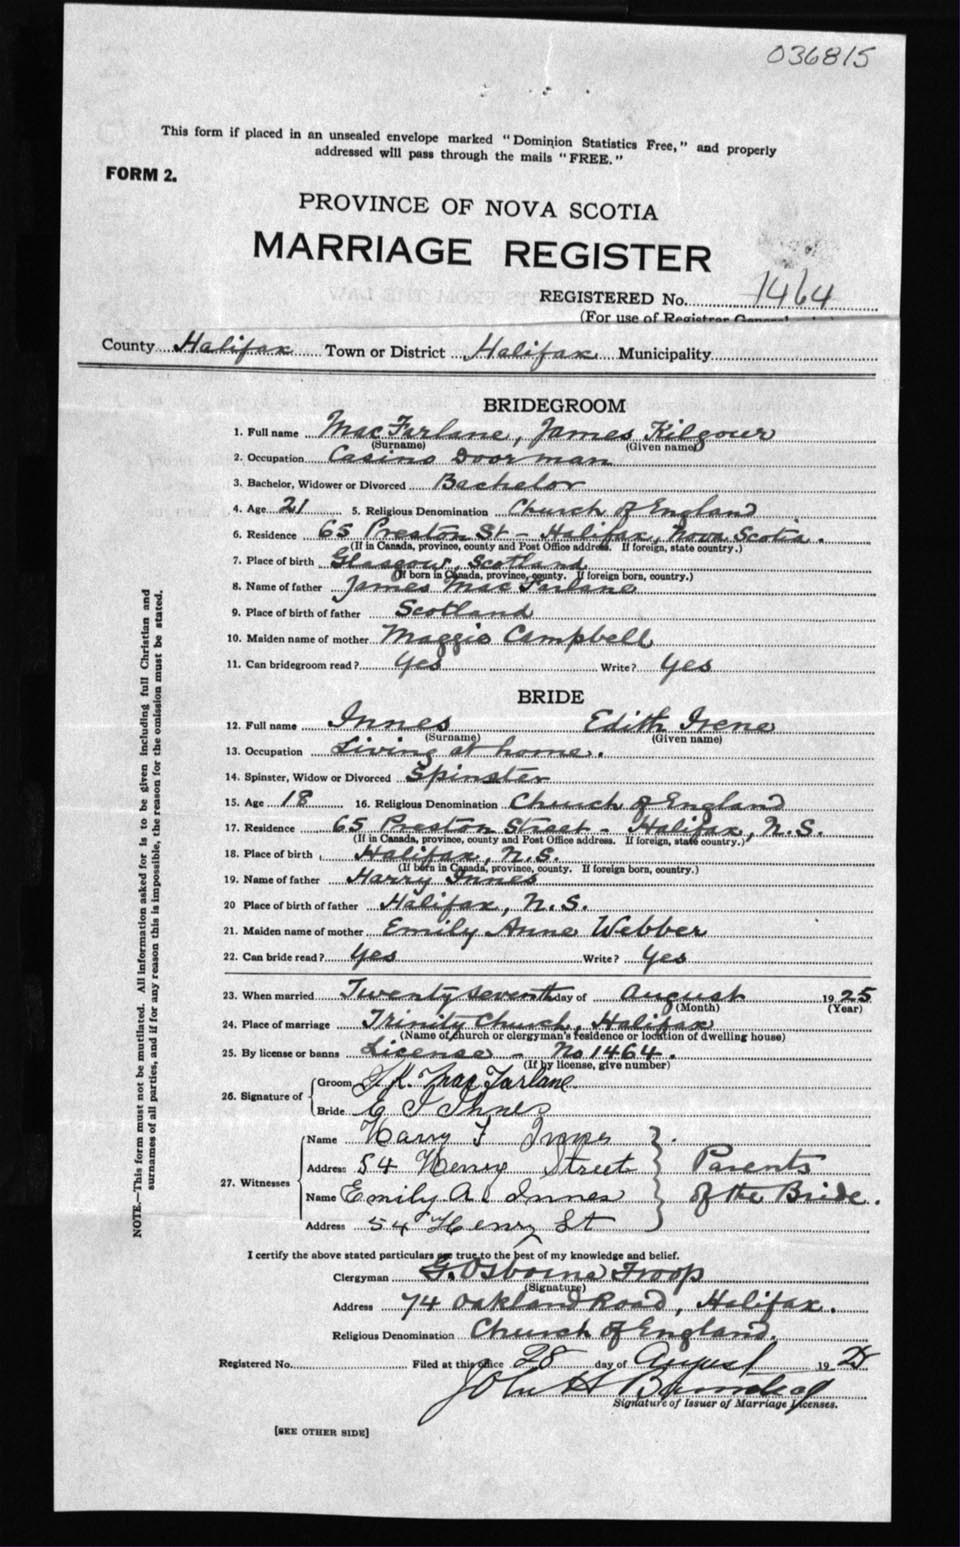 036815
This form if placed in an unsealed envelope marked "Dominion Statistics Free," and properly
addressed will pass through the mails "FREE."
FORM 2.
PROVINCE OF NOVA SCOTIA
MARRIAGE REGISTER
REGISTERED No. 1464
(For use of Registrar General
County Halifax Town or District Halifax Municipality
BRIDEGROOM
1. Full name MacFarlane, James Kilgour
(Surname) (Given name)
2. Occupation Casino Doorman
3. Bachelor, Widower or Divorced Bachelor
4. Age 21 5. Religious Denomination Church of England
6. Residence 65 Preston St - Halifax, Nova Scotia.
(If in Canada, province, county and Post Office address. If foreign, state country.)
7. Place of birth Glasgow, Scotland
(If born in Canada, province, county. If foreign born, country.)
8. Name of father James MacFarlane
9. Place of birth of father Scotland
10. Maiden name of mother Maggie Campbell
11. Can bridegroom read? Yes Write? Yes
BRIDE
12. Full name Innes Edith Irene
(Surname) (Given name)
13. Occupation Living at home.
14. Spinster, Widow or Divorced Spinster
15. Age 18 16. Religious Denomination Church of England
17. Residence 65 Preston Street - Halifax, N.S.
(If in Canada, province, county and Post Office address. If foreign, state country.)
18. Place of birth Halifax, N.S.
(If born in Canada, province, county. If foreign born, country.)
19. Name of father Harry Innes
20 Place of birth of father Halifax, N.S.
21. Maiden name of mother Emily Anne Webber
22. Can bride read? Yes Write? Yes
23. When married Twenty seventh day of August 1925
(Month) (Year)
24. Place of marriage Trinity Church, Halifax
(Name of church or clergyman's residence or location of dwelling house)
25. By license or banns License - No 1464.
(If by license, give number)
26. Signature of
Groom J. K. MacFarlane
Bride E I Innes
27. Witnesses
Name Harry F Innes
Address 54 Henry Street
Name Emily A. Innes
Address 54 Henry St
Parents
of the Bride.
I certify the above stated particulars are true to the best of my knowledge and belief.
Clergyman G. Osborne Troop
(Signature)
Address 74 Oakland Road, Halifax.
Religious Denomination Church of England.
Registered No. Filed at this office 28 day of August 19 25
John H
Signature of Issuer of Marriage Licenses.
[SEE OTHER SIDE]
NOTE.—This form must not be mutilated. All information asked for is to be given including full Christian and
surnames of all parties, and if for any reason this is impossible, the reason for the omission must be stated.